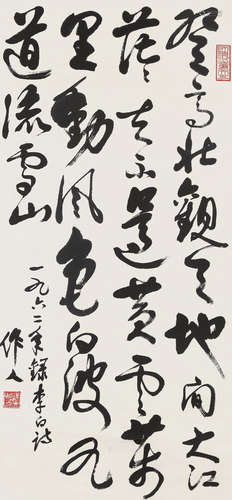 登高壯觀天地間大江
茫々去不還黃雲萬
里動風色白波九
道流雪山
一九六二年錄李白詩
作人